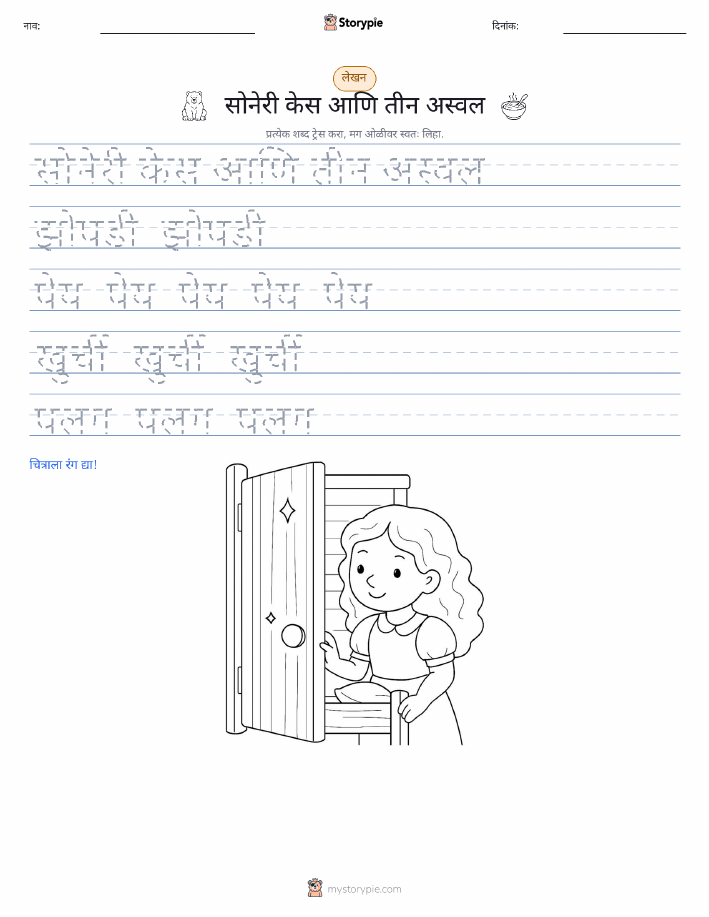 नाव:
Storypie
दिनांक:
लेखन
सोनेरी केस आणि तीन अस्वल
प्रत्येक शब्द ट्रेस करा, मग ओळीवर स्वतः लिहा.
सोनेरी केस आणि तीन अस्वल
झोपडी झोपडी
पेय पेय पेय पेय पेय
खुर्ची खुर्ची खुर्ची
पलंग पलंग पलंग
चित्राला रंग द्या!
mystorypie.com